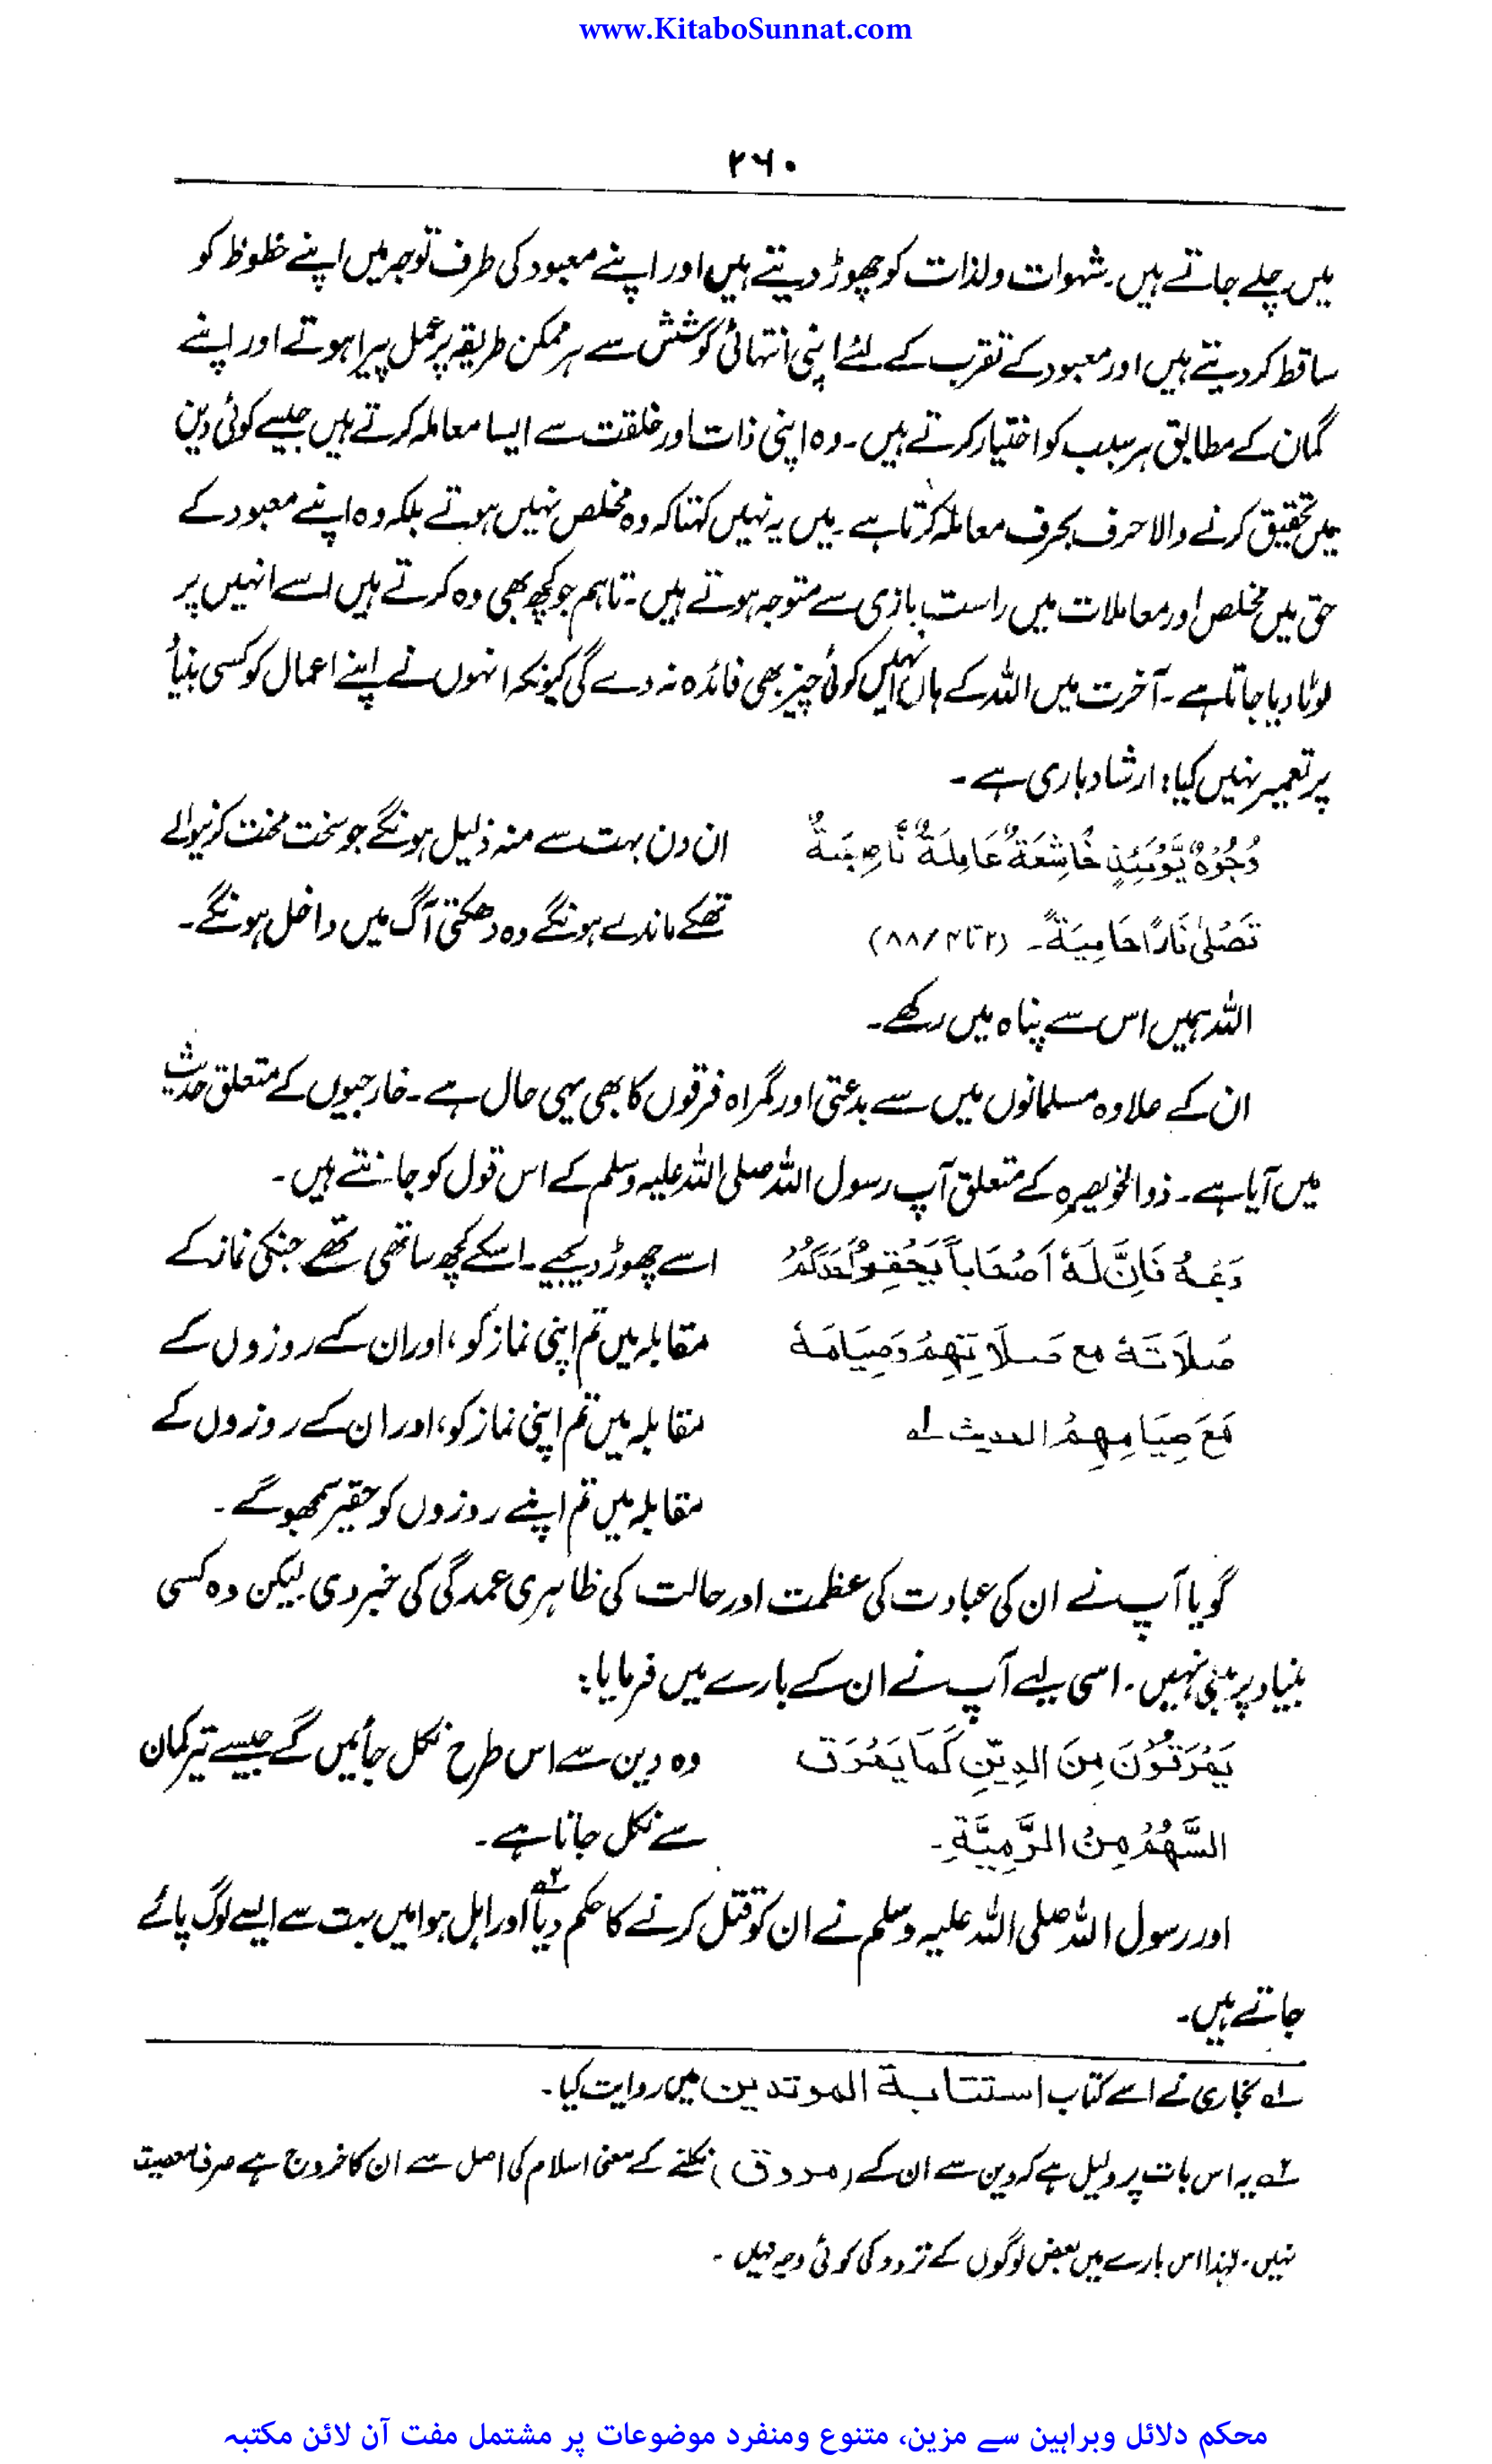 www.KitaboSunnat.com
۲۶۰
میں چلے جاتے ہیں۔ شہوات ولذات کو چھوڑ دیتے ہیں اور اپنے معبود کی طرف توجہ میں اپنے حظوظ کو
ساقط کر دیتے ہیں اور معبود کے تقرب کے لئے اپنی انتہائی کوشش سے ہر ممکن طریقہ پر عمل پیرا ہوتے اور اپنے
گمان کے مطابق ہر سبب کو اختیار کرتے ہیں۔ وہ اپنی ذات اور خلقت سے ایسا معاملہ کرتے ہیں جیسے کوئی دین
میں تحقیق کرنے والا حرف بحرف معاملہ کرتا ہے۔ میں یہ نہیں کہتا کہ وہ مخلص نہیں ہوتے بلکہ وہ اپنے معبود کے
حق میں مخلص اور معاملات میں راست بازی سے متوجہ ہوتے ہیں۔ تاہم جو کچھ بھی وہ کرتے ہیں اسے انہیں پر
لوٹا دیا جاتا ہے۔ آخرت میں اللہ کے ہاں انہیں کوئی چیز بھی فائدہ نہ دے گی کیونکہ انہوں نے اپنے اعمال کو کسی بنیاد
پر تعمیر نہیں کیا؛ ارشاد باری ہے۔
وُجُوْهٌ يَّوْمَئِذٍ خَاشِعَةٌ عَامِلَةٌ نَّاصِبَةٌ ان دن بہت سے منہ ذلیل ہونگے جو سخت محنت کرنیوالے
تَصْلٰى نَارًا حَامِيَةً۔ (۲ تا ۴/۸۸) تھکے ماندے ہونگے وہ دھکتی آگ میں داخل ہونگے۔
اللہ ہمیں اس سے پناہ میں رکھے۔
ان کے علاوہ مسلمانوں میں سے بدعتی اور گمراہ فرقوں کا بھی یہی حال ہے۔ خارجیوں کے متعلق حدیث
میں آیا ہے۔ ذوالخویصرہ کے متعلق آپ رسول اللہ صلی اللہ علیہ وسلم کے اس قول کو جانتے ہیں۔
دَعْهُ فَاِنَّ لَهٗ اَصْحَاباً يَحْقِرُ اَحَدُكُمْ اسے چھوڑ دیجیے۔ اسکے کچھ ساتھی تھے جنکی نماز کے
صَلَاتَهٗ مع صَلَاتِهِمْ وَصِيَامَهٗ مقابلہ میں تم اپنی نماز کو، اور ان کے روزوں کے
مَعَ صِيَامِهِمْ الحديث لہ مقابلہ میں تم اپنی نماز کو، اور ان کے روزوں کے
مقابلہ میں تم اپنے روزوں کو حقیر سمجھو گے۔
گویا آپ نے ان کی عبادت کی عظمت اور حالت کی ظاہری عمدگی کی خبر دی لیکن وہ کسی
بنیاد پر مبنی نہیں۔ اسی لیے آپ نے ان کے بارے میں فرمایا:
يَمْرُقُوْنَ مِنَ الدِيْنِ كَمَا يَمْرُقُ وہ دین سے اس طرح نکل جائیں گے جیسے تیر کمان
السَّهْمُ مِنْ الرَّمِيَّةِ۔ سے نکل جاتا ہے۔
اور رسول اللہ صلی اللہ علیہ وسلم نے ان کو قتل کرنے کا حکم دیا ۲ہ اور اہل ہوا میں بہت سے ایسے لوگ پائے
جاتے ہیں۔
لہ بخاری نے اسے کتاب استتابة المرتدین میں روایت کیا۔
۲ہ یہ اس بات پر دلیل ہے کہ دین سے ان کے (مروق) نکلنے کے معنی اسلام کی اصل سے ان کا خروج ہے صرف معصیت
نہیں۔ لہٰذا اس بارے میں بعض لوگوں کے تردد کی کوئی وجہ نہیں۔
محکم دلائل وبراہین سے مزین، متنوع ومنفرد موضوعات پر مشتمل مفت آن لائن مکتبہ